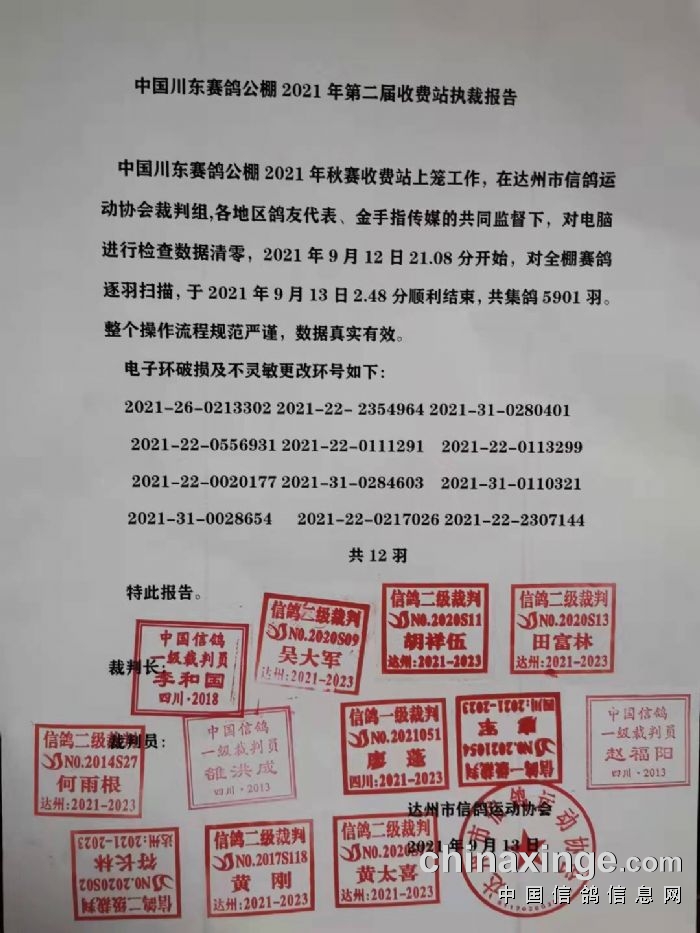 中国川东赛鸽公棚 2021 年第二届收费站执裁报告
中国川东赛鸽公棚 2021 年秋赛收费站上笼工作，在达州市信鸽运
动协会裁判组,各地区鸽友代表、金手指传媒的共同监督下，对电脑
进行检查数据清零，2021 年 9 月 12 日 21.08 分开始，对全棚赛鸽
逐羽扫描，于 2021 年 9 月 13 日 2.48 分顺利结束，共集鸽 5901 羽。
整个操作流程规范严谨，数据真实有效。
电子环破损及不灵敏更改环号如下：
2021-26-0213302 2021-22- 2354964 2021-31-0280401
2021-22-0556931 2021-22-0111291 2021-22-0113299
2021-22-0020177 2021-31-0284603 2021-31-0110321
2021-31-0028654 2021-22-0217026 2021-22-2307144
共 12 羽
特此报告。
裁判长：
中国信鸽
一级裁判员
李和国
四川·2018
信鸽二级裁判
NO.2020S09
吴大军
达州:2021-2023
信鸽二级裁判
NO.2020S11
胡祥伍
达州:2021-2023
信鸽二级裁判
NO.2020S13
田富林
达州:2021-2023
裁判员：
信鸽二级裁判
NO.2014S27
何雨根
达州:2021-2023
中国信鸽
一级裁判员
雒洪成
四川·2013
信鸽一级裁判
NO.2021051
廖蓬
四川:2021-2023
信鸽一级裁判
NO.2021054
四川:2021-2023
中国信鸽
一级裁判员
赵福阳
四川·2013
达州市信鸽运动协会
2021 年 9 月 13 日
信鸽二级裁判
NO.2020S02
符长林
达州:2021-2023
信鸽二级裁判
NO.2017S118
黄刚
达州:2021-2023
信鸽二级裁判
黄太喜
达州:2021-2023
达州市信鸽运动协会
chinaxinge.com
中国信鸽信息网